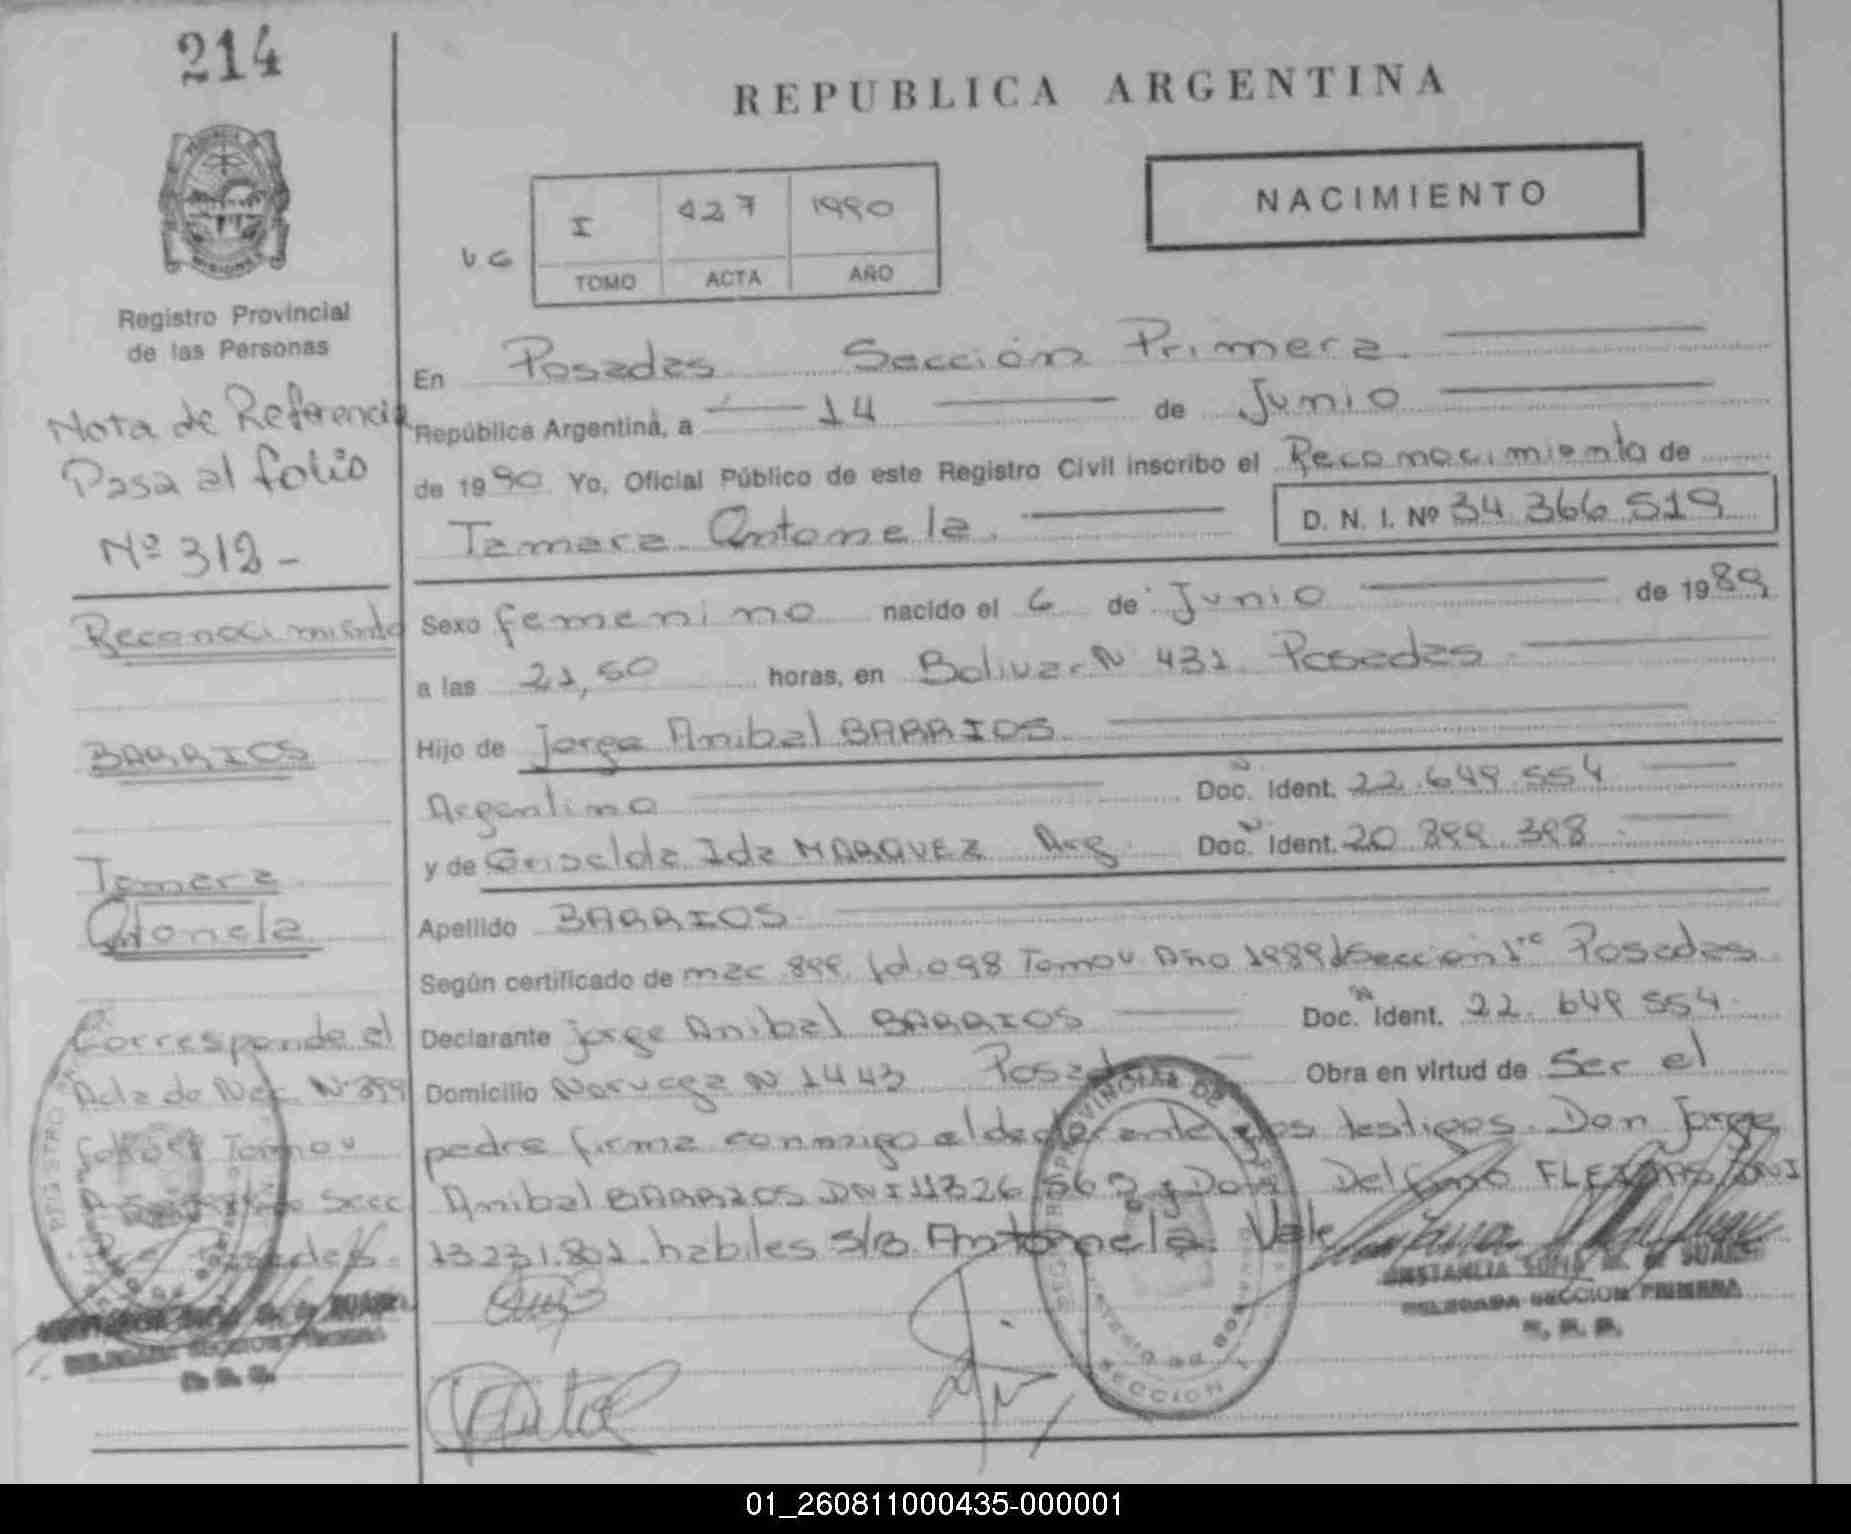 214
REPUBLICA ARGENTINA
NACIMIENTO
I 427 1990
TOMO ACTA AÑO
Registro Provincial
de las Personas
Nota de Referencia
Pasa al folio
Nº 312 -
Reconocimiento
BARRIOS
Tamara
Antonela
Corresponde el
Acta de Nac. Nº 899
Tomo V
Secc
Posadas.
En Posadas Sección Primera.
República Argentina, a 14 de Junio
de 1990 Yo, Oficial Público de este Registro Civil inscribo el Reconocimiento de
Tamara Antonela. D. N. I. Nº 34 366 519
Sexo femenino nacido el 6 de Junio de 1989
a las 21,50 horas, en Bolivar Nº 431 Posadas
Hijo de Jorge Anibal BARRIOS
Argentino Doc. Ident. 22.649.554
y de Griselda Ida MARQUEZ Arg. Doc. Ident. 20 899.398
Apellido BARRIOS
Según certificado de nac. 899 fol. 098 Tomo V Año 1989 Sección 1ra Posadas
Declarante Jorge Anibal BARRIOS Doc. Ident. 22. 649 554
Domicilio Noruega Nº 1443 Posadas Obra en virtud de Ser el
padre firma conmigo el declarante y los testigos. Don Jorge
Anibal BARRIOS DNI 11326 569 y Don Delfino DNI
13231.801. habiles s/b Antonela Vale
REGISTRO PROVINCIAL DE
SECCION
DELEGADA SECCION PRIMERA
DELEGADA SECCION PRIMERA
01_260811000435-000001